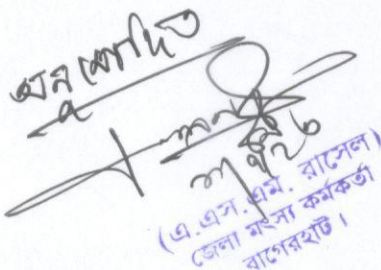 অনুমোদিত
(এ.এস.এম. রাসেল)
জেলা মৎস্য কর্মকর্তা
বাগেরহাট।